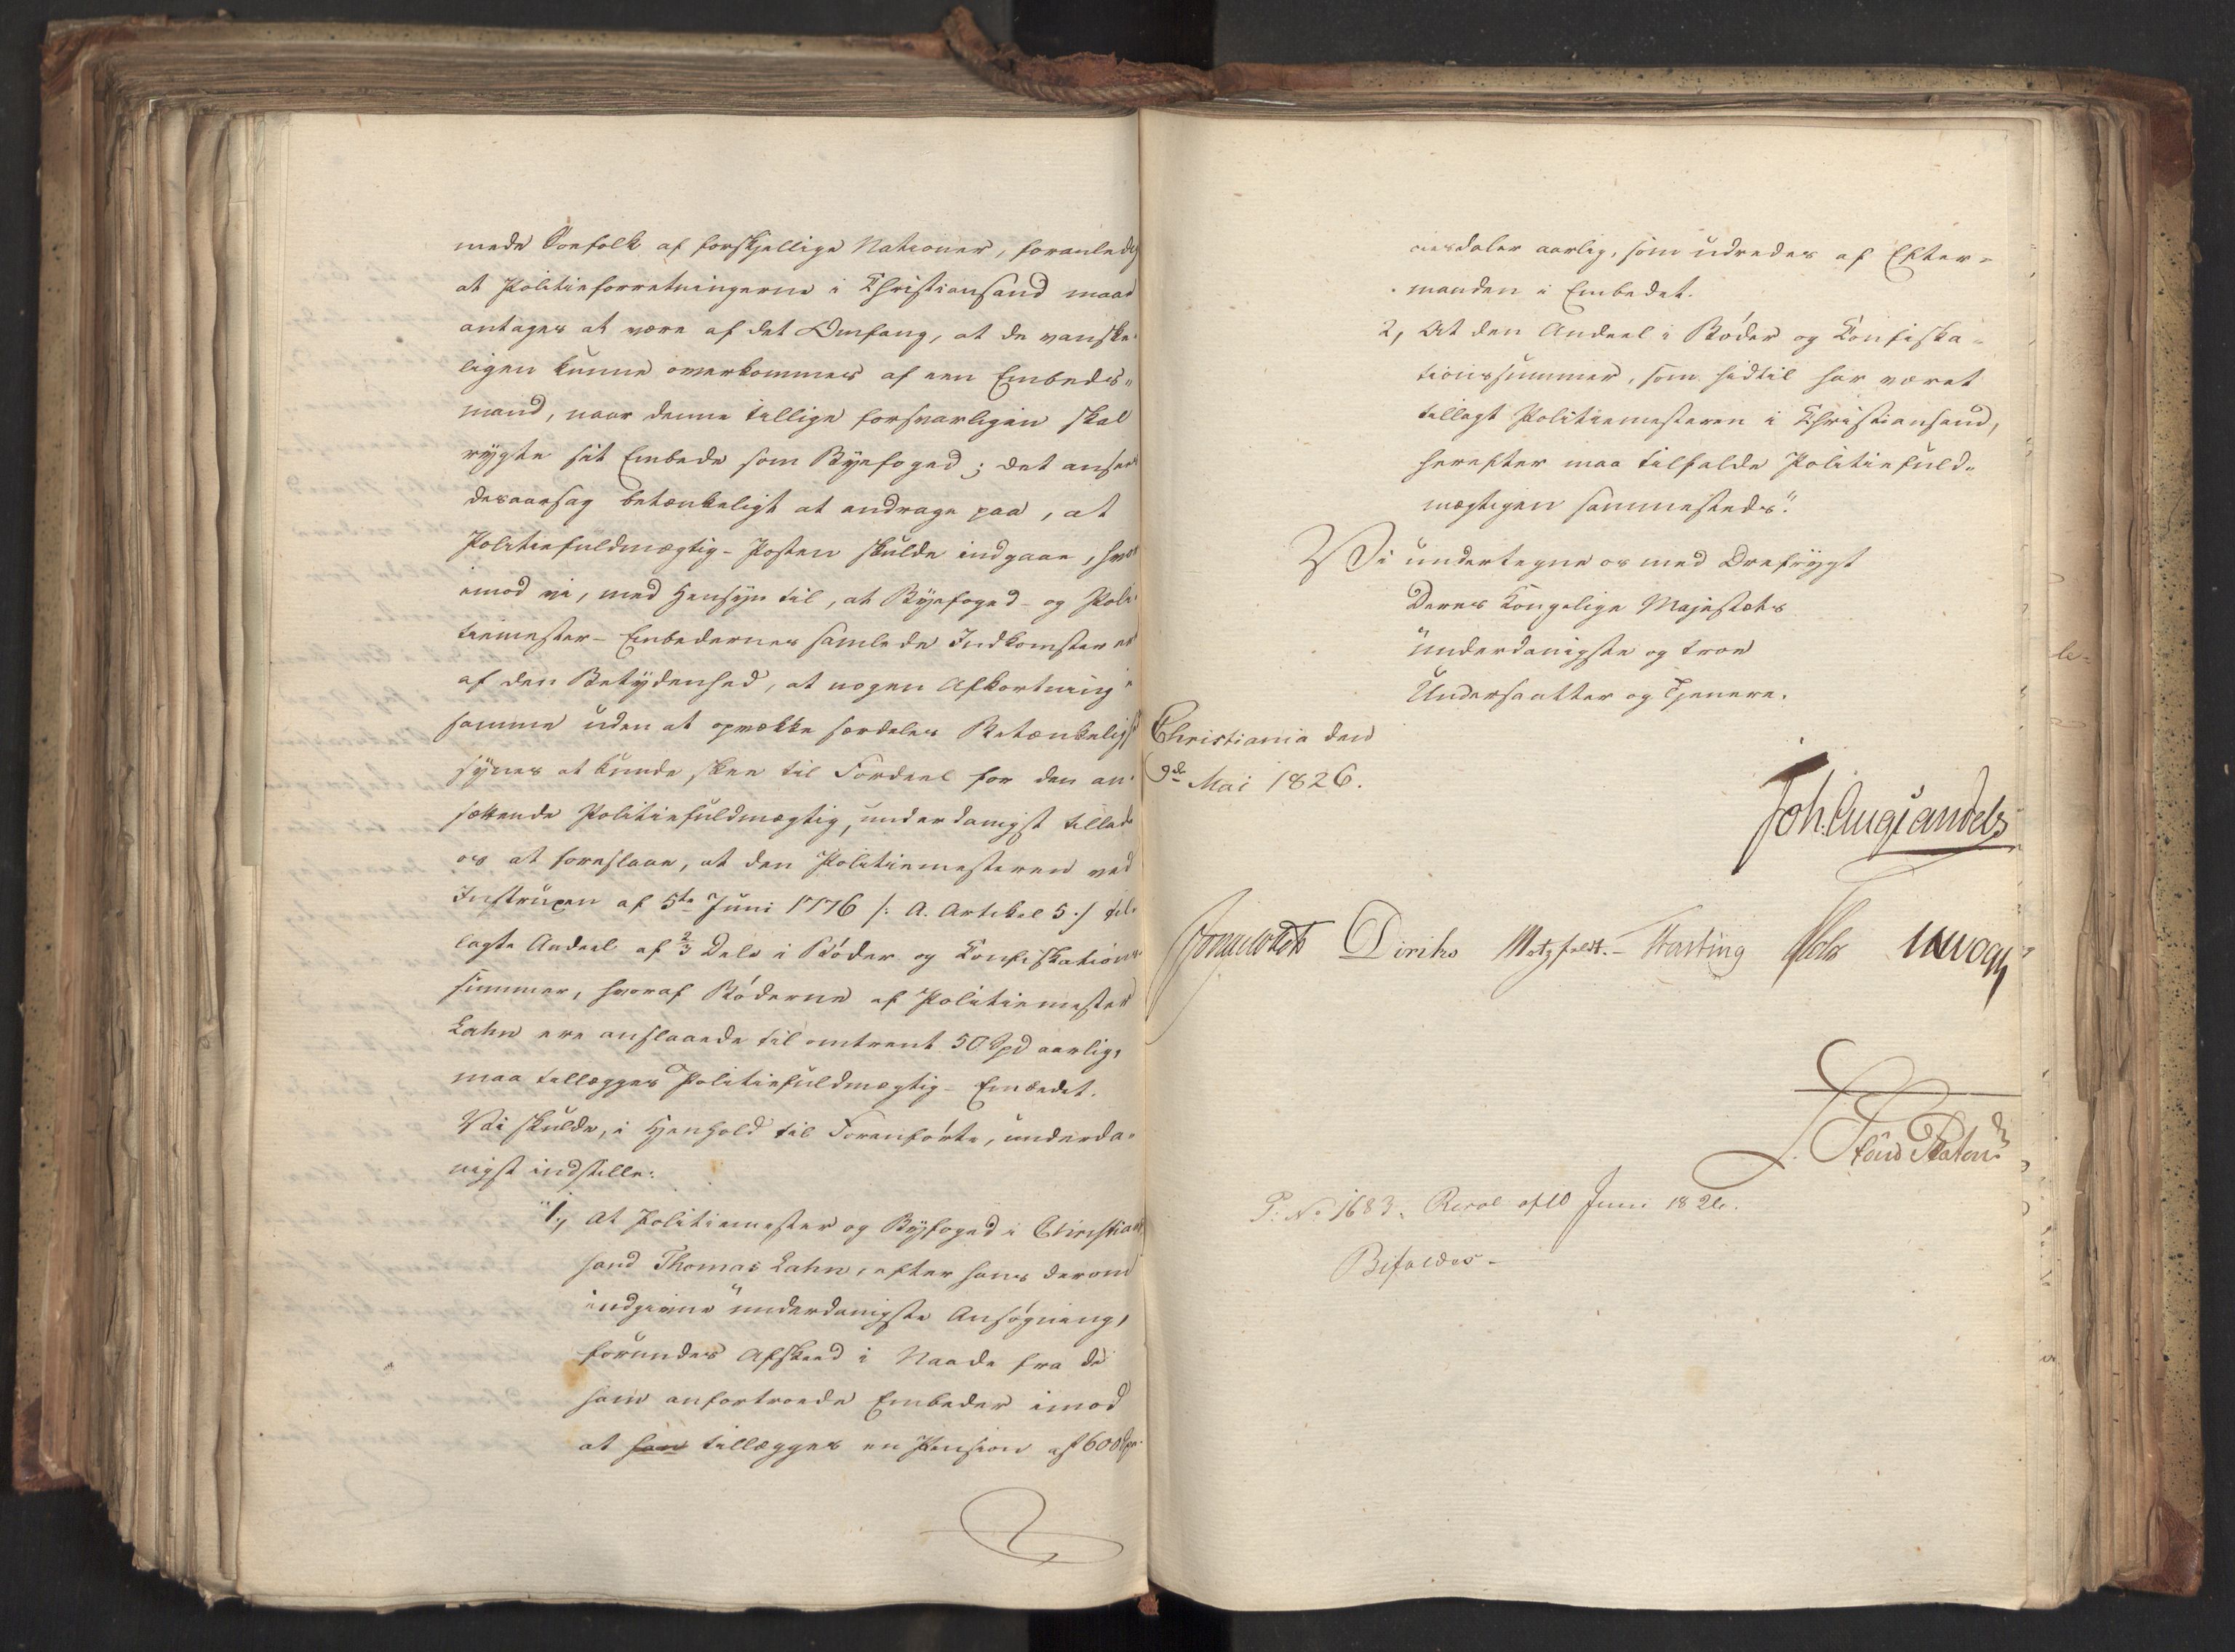 mede Søefolk af forskjellige Nationer, foranledig
at Politieforretningerne i Christiansand maae
antages at være af det Omfang, at de vanske-
ligen kunne overkommes af een Embeds-
mand, naar denne tillige forsvarligen skal
rygte sit Embede som Byefoged; det ansees
desaarsag betænkeligt at andrage paa, at
Politiefuldmægtig-Posten skulde indgaae, hvor
imod vi, med Hensyn til, at Byefoged- og Poli-
tiemester-Embedernes samlede Indkomster er
af den Betydenhed, at nogen Afkortning i
samme uden at opvække særdeles Betænkelighed
synes at kunde skee til Fordeel for den an-
sættende Politiefuldmægtig, underdanigst tillade
os at foreslaae, at den Politiemesteren ved
Instruxen af 5te Juni 1776 /: A. Artikel 5 :/ til-
lagte Andeel af 2/3 Dele i Bøder og Confiskations-
summer, hvoraf Bøderne af Politiemester
Lahn ere anslaaede til omtrent 50 Spd aarlig,
maa tillægges Politiefuldmægtig-Embedet.
Vi skulde, i Henhold til Foranførte, underda-
nigst indstille:
"1, At Politiemester og Byfoged i Christian-
sand Thomas Lahn, efter hans derom
indgivne underdanigste Ansøgning,
forundes Afskeed i Naade fra de
ham anfortroede Embeder imod
at ham tillægges en Pension af 600 Spe-
ciesdaler aarlig, som udredes af Efter-
manden i Embedet.
2, At den Andeel i Bøder og Confiska-
tionssummer, som hidtil har været
tillagt Politiemesteren i Christiansand,
herefter maa tilfalde Politiefuld-
mægtigen sammesteds."
Vi undertegne os med Ærefrygt
Deres Kongelige Majestæts
underdanigste og troe
Undersaatter og Tjenere.
Christiania den
9de Mai 1826.
Joh. Aug. Sandels
Diriks Motzfeldt. Fasting Holst
P: No 1683. Resol. af 10 Juni 1826.
Bifaldes-